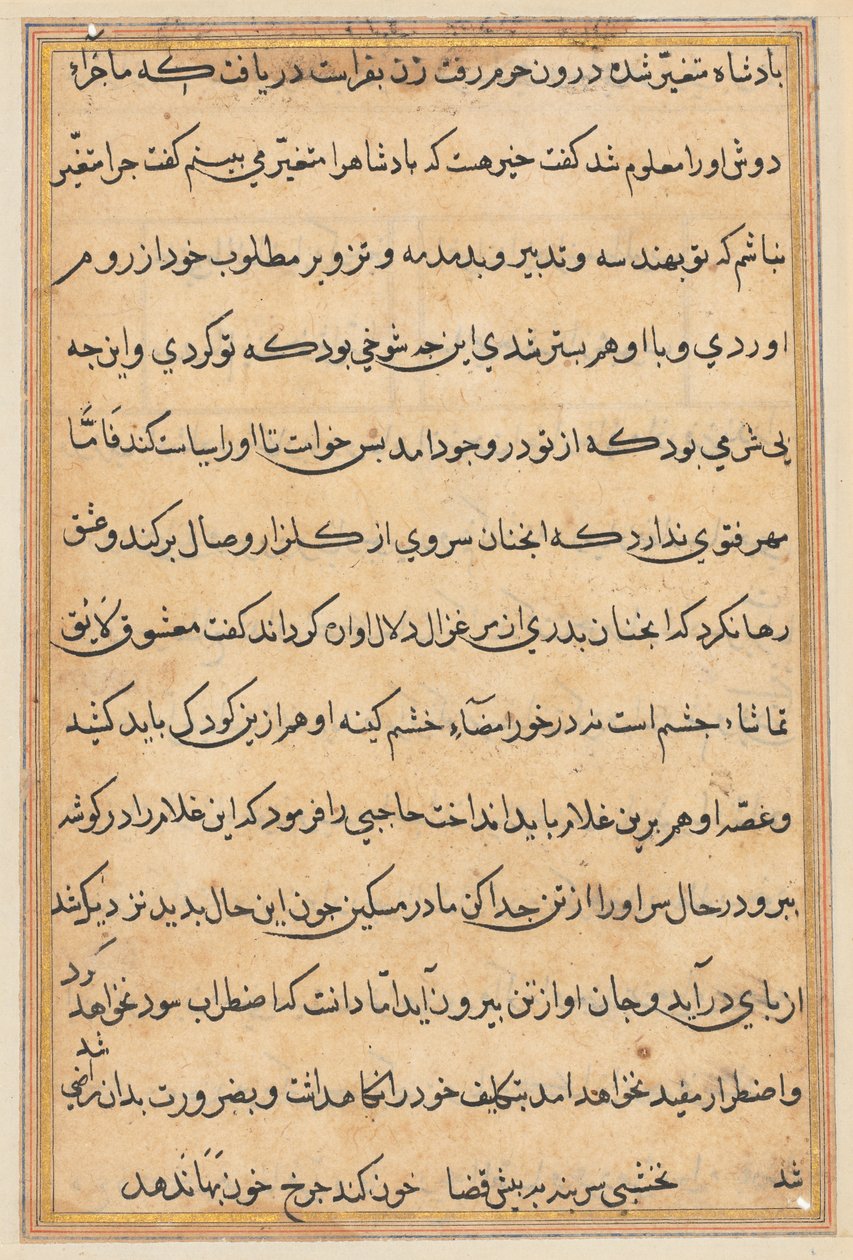 بادشاه متغیّر شده درون حرم رفت زن بفراست دریافت که ماجراء
دوش او را معلوم شد کفت خیر هست که بادشاه را متغیّر می بینم کفت جرا متغیّر
نباشم که تو بهندسه و تدبیر و بدمدمه و تزویر مطلوب خود از روم
اوردي و با او هم بستر شدي این جه شوخي بود که تو کردي و این جه
بی شرمي بود که از تو در وجود امد بس خواست تا او را سیاست کند فَامَّا
مهر فتوي نداد که انجنان سروي از کلزار وصال برکند و عشق
رها نکرد که انجنان بدري از مرغزال دلال اواره کرداند کفت معشوق لَایِق
تماشاء جشم است نه در خور امضآءِ خشم کینه او هم ازین کودک باید کشید
و غصّه او هم برین غلام باید انداخت حاجبي را فرمود که این غلام را در کوشه
ببر و در حال سر او را از تن جدا کن مادر مسکین جون این حال بدید نزدیک شد
از باي درآید و جان او از تن بیرون آید امّا دانست که اضطراب سود نخواهد کرد
و اضطرار مفید نخواهد امد بتکلیف خود را نکاهداشت و بضرورت بدان راضي شد
شد نخشبي سر بنه به بیش قضا خون کند جرخ خون بَهَا ندهد